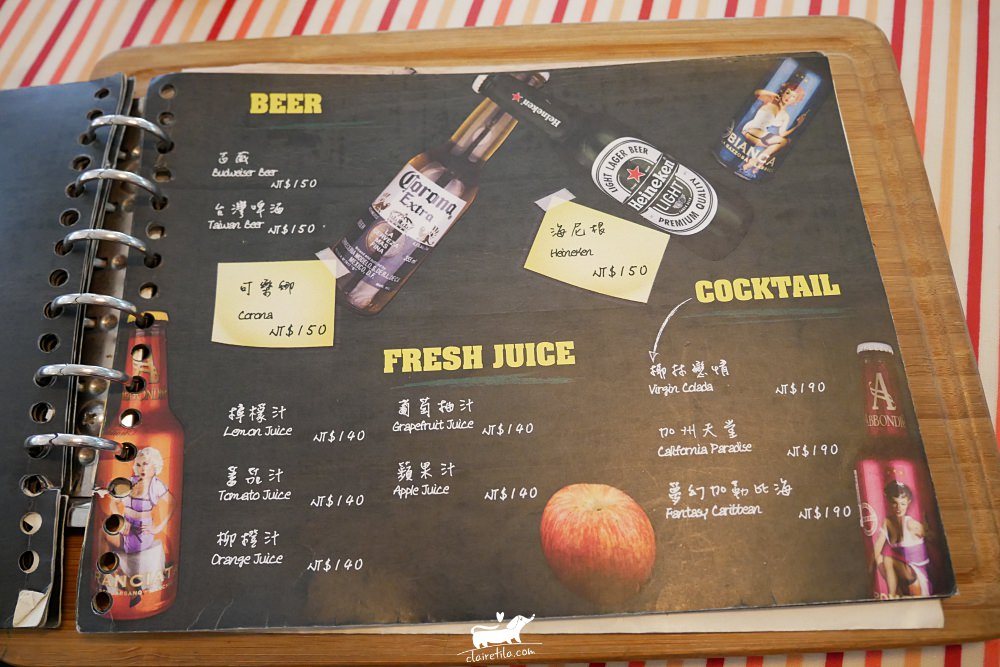 BEER
百威
Budweiser Beer
NT$150
台灣啤酒
Taiwan Beer NT$150
可樂娜
Corona
NT$150
Corona
Extra
LA CERVEZA MAS FINA
Heineken
LIGHT LAGER BEER
Heineken
LIGHT
PREMIUM QUALITY
BIANCA
海尼根
Heineken
NT$150
FRESH JUICE
檸檬汁
Lemon Juice NT$140
蕃茄汁
Tomato Juice NT$140
柳橙汁
Orange Juice NT$140
葡萄柚汁
Grapefruit Juice NT$140
蘋果汁
Apple Juice NT$140
COCKTAIL
椰林戀情
Virgin Colada NT$190
加州天堂
California Paradise NT$190
夢幻加勒比海
Fantasy Caribbean NT$190
A
ABBONDIO
clairetila.com